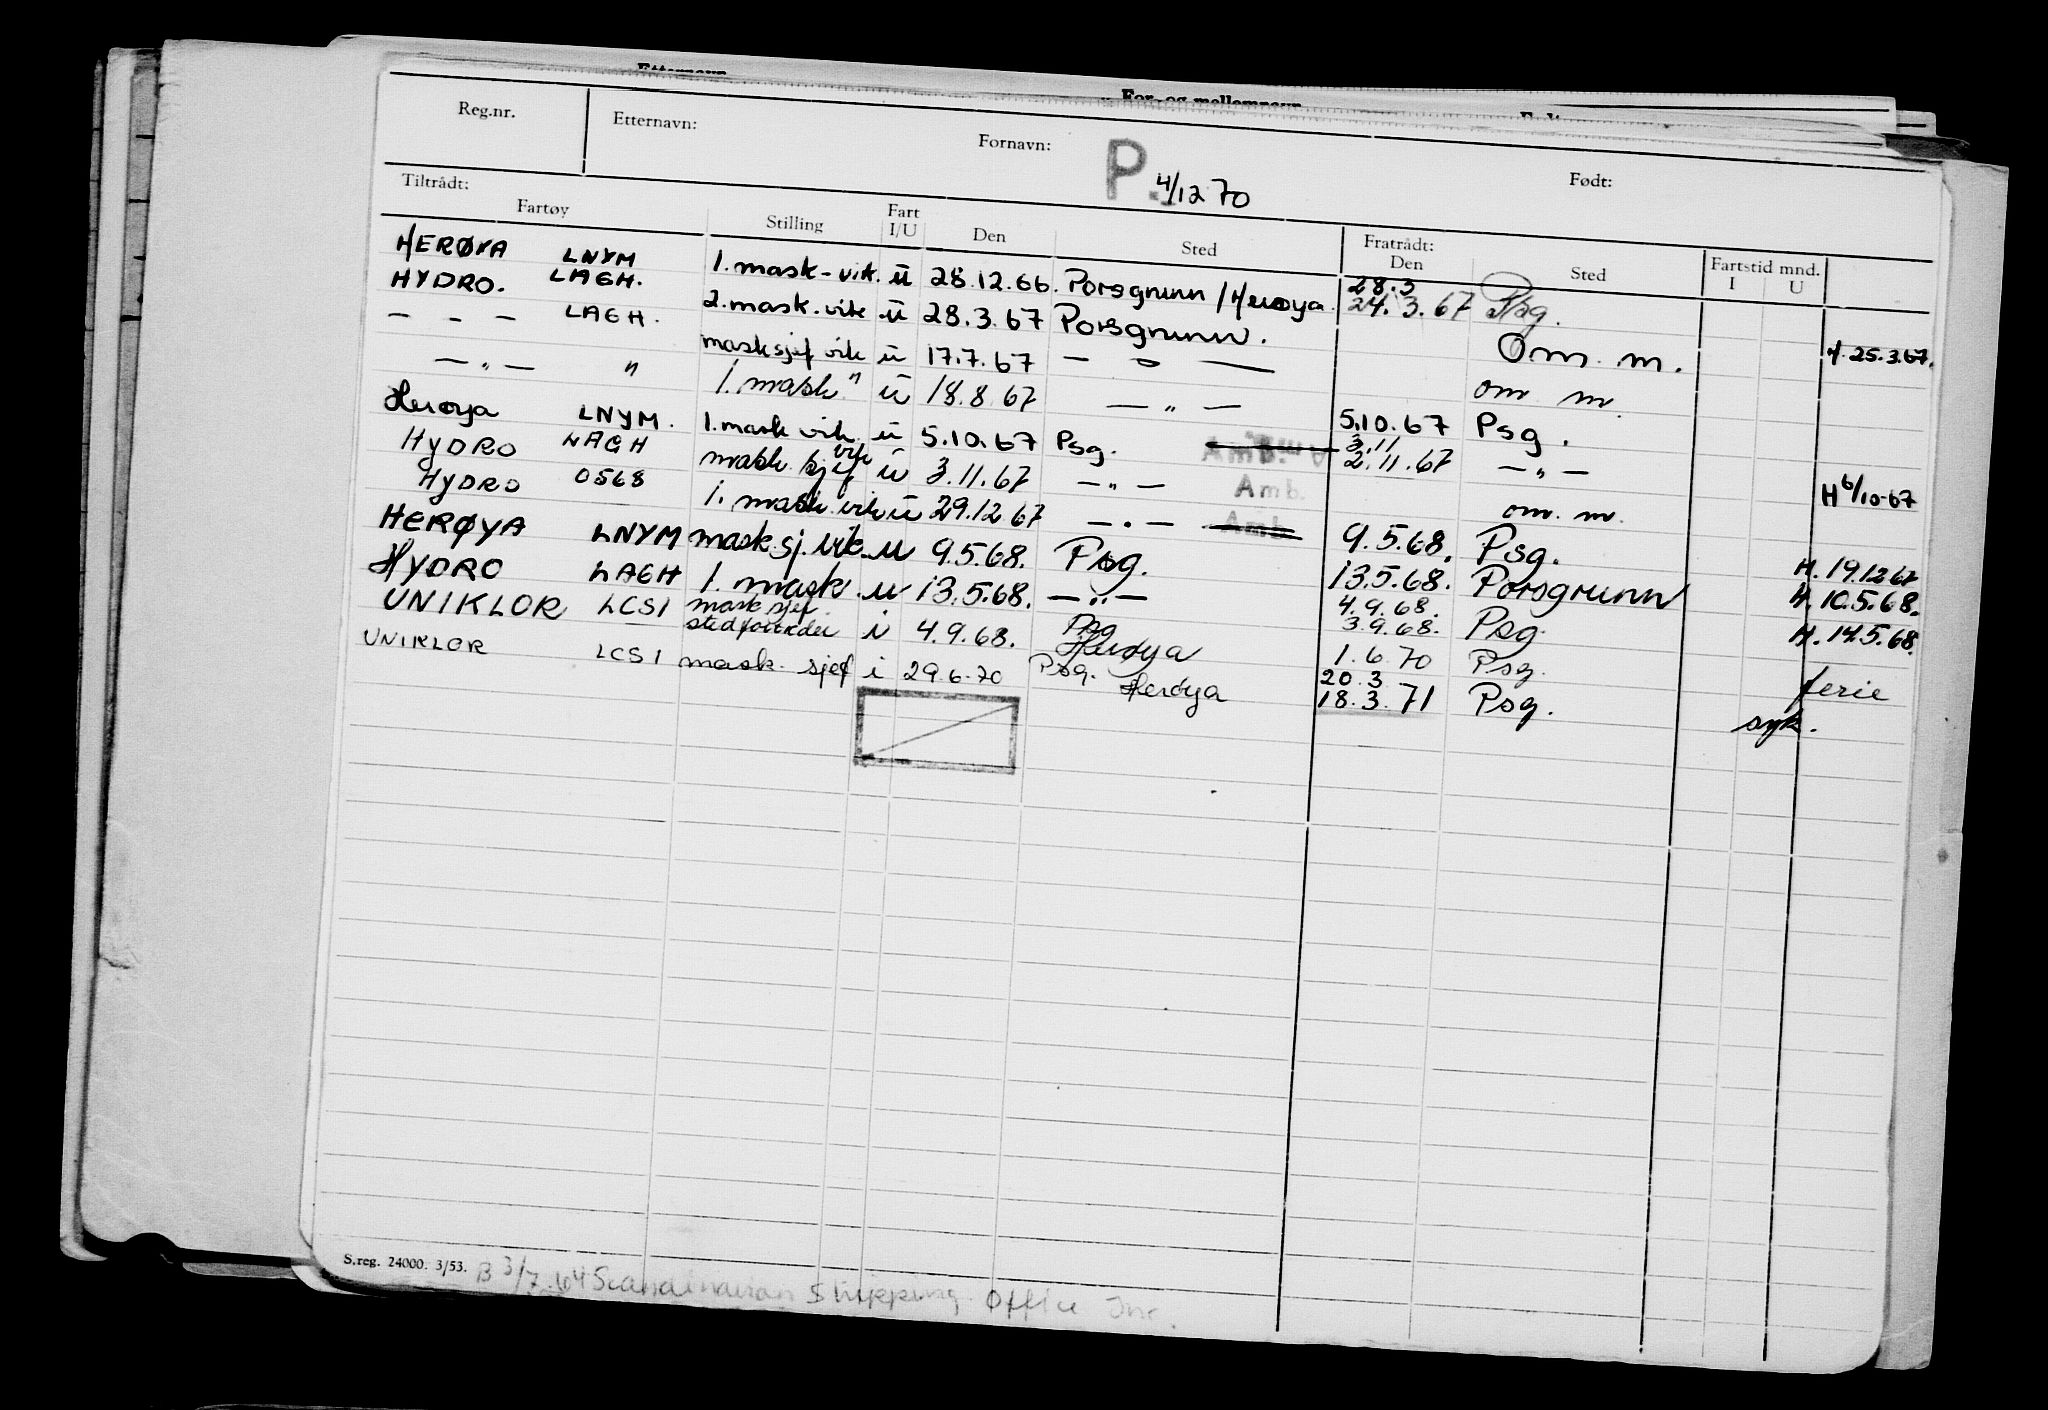 Reg.nr. Etternavn: Fornavn: P. 4/12 70 Født:
Tiltrådt: Fratrådt:
Fartøy Stilling Fart I/U Den Sted Den Sted Fartstid mnd. I U
HERØYA LNYM 1. mask-vik. u 28.12.66. Porsgrunn / Herøya. 28.3 24.3.67 Psg.
HYDRO. LAGH. 2. mask. vik u 28.3.67 Porsgrunn. Om. m. H. 25.3.67.
— — — LAGH. masksjef vik u 17.7.67 — " — om m.
— " — " 1. mask " u 18.8.67 — " — 5.10.67 Psg.
Herøya LNYM. 1. mask vik. u 5.10.67 Psg. 3.11 2.11.67 — " —
HYDRO LAGH mask. sjef vik u 3.11.67 — " — Amb. om. m. H 6/10-67
HYDRO 0568 1. mask. vik u 29.12.67 — " — Amb. 9.5.68. Psg.
HERØYA LNYM mask.sj. vik. u 9.5.68. Psg. 13.5.68. Porsgrunn H. 19.12 67
HYDRO LAGH 1. mask. u 13.5.68. — " — 4.9.68. 3.9.68. Psg. H. 10.5.68.
UNIKLOR LCSI mask sjef. stedfortreder i 4.9.68. Psg Herøya 1.6.70 Psg. H. 14.5.68.
UNIKLOR LCSI mask. sjef i 29.6.70 Psg. Herøya 20.3 18.3.71 Psg. ferie
syk.
S.reg. 24000. 3/53. B 3/7.64 Scandinavian Shipping Office Inc.